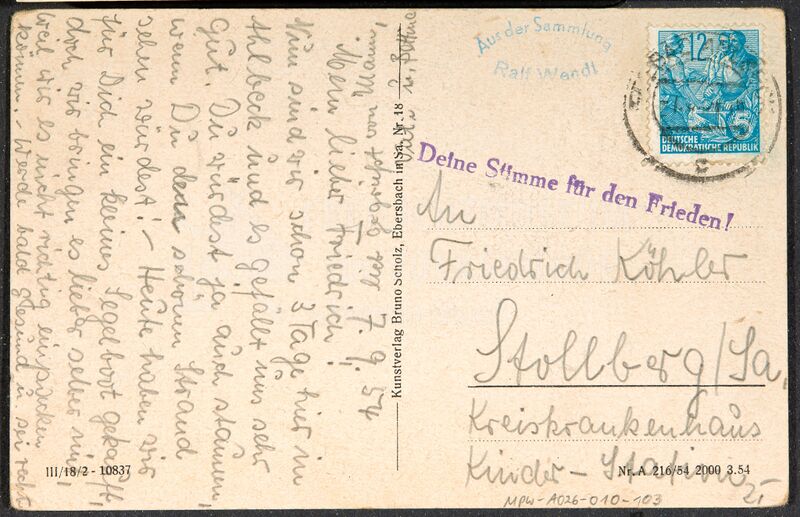 7. 9. 54
Mein lieber Friedrich!
Nun sind wir schon 3 Tage hier in
Ahlbeck und es gefällt uns sehr
gut. Du würdest ja auch staunen,
wenn Du den schönen Strand
sehen würdest! - Heute haben wir
für Dich ein kleines Segelboot gekauft,
doch wir bringen es lieber selber mit,
weil wir es nicht richtig einpacken
können. - Werde bald gesund u. sei recht
gegrüßt von Mami,
Vati u.
Kunstverlag Bruno Scholz, Ebersbach in Sa. Nr. 18
III/18/2 - 10837
Aus der Sammlung
Ralf Wendt
12
5
DEUTSCHE
DEMOKRATISCHE REPUBLIK
c
Deine Stimme für den Frieden!
An
Friedrich Köhler
Stollberg/Sa.
Kreiskrankenhaus
Kinder-Station
Nr. A 216/54 2000 3.54
MPW-A026-010-103
2,-